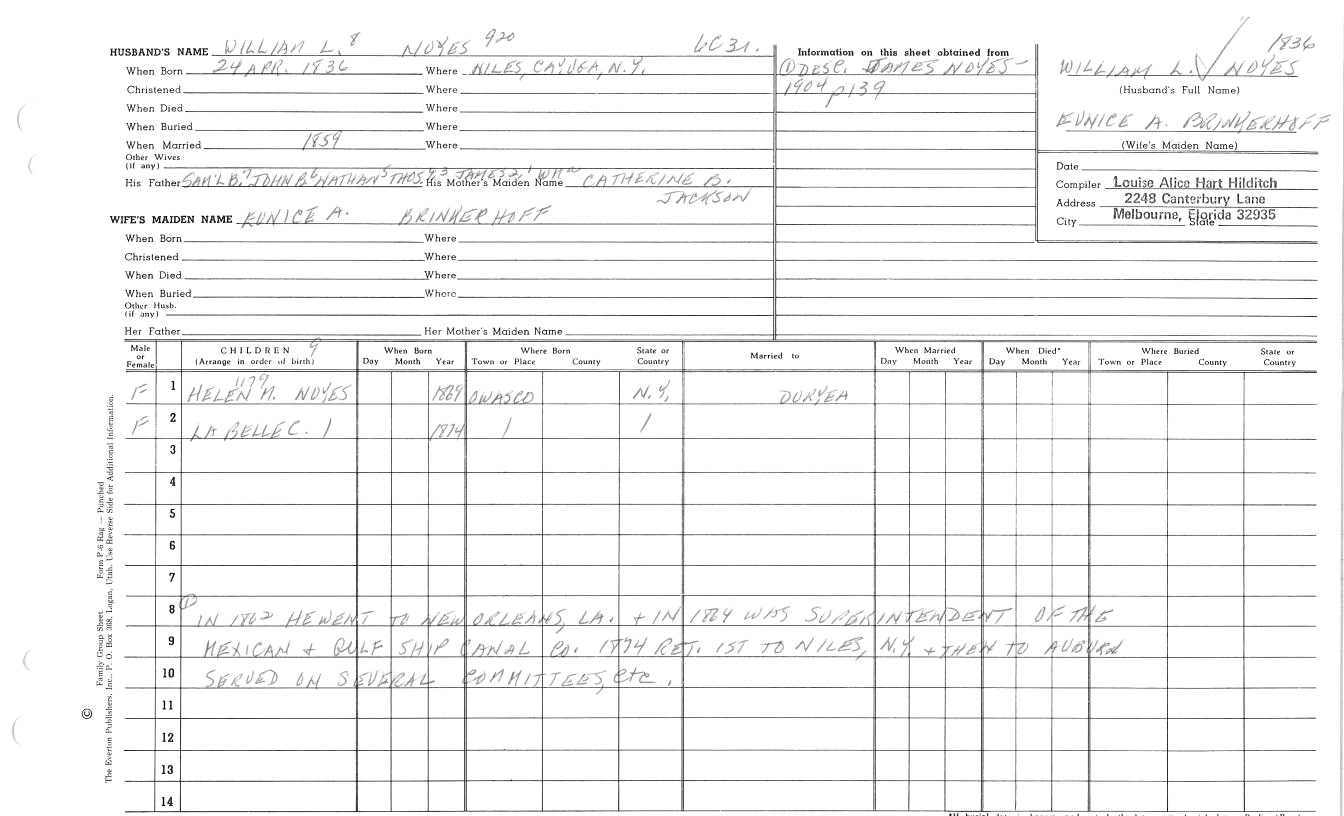 HUSBAND'S NAME WILLIAM L. 8 NOYES 920 6C31.
When Born 24 APR. 1836 Where NILES, CAYUGA, N.Y.
Christened Where
When Died Where
When Buried Where
When Married 1859 Where
Other Wives
(if any)
His Father SAM'L B.7 JOHN B6 NATHAN5 THOS. 4,3 JAMES 2, 1 WM His Mother's Maiden Name CATHERINE B.
JACKSON
WIFE'S MAIDEN NAME EUNICE A. BRINKERHOFF
When Born Where
Christened Where
When Died Where
When Buried Where
Other Husb.
(if any)
Her Father Her Mother's Maiden Name
Information on this sheet obtained from
① DESC. JAMES NOYES -
1904 p139
1836
WILLIAM L. NOYES
(Husband's Full Name)
EUNICE A. BRINKERHOFF
(Wife's Maiden Name)
Date
Compiler Louise Alice Hart Hilditch
Address 2248 Canterbury Lane
City Melbourne, Florida 32935 State
Male or Female CHILDREN 9 (Arrange in order of birth) When Born Day Month Year Where Born Town or Place County State or Country Married to When Married Day Month Year When Died* Day Month Year Where Buried Town or Place County State or Country
1179
F 1 HELEN N. NOYES 1869 OWASCO N.Y. DURYEA
F 2 LA BELLE C. / 1874 / /
3
4
5
6
7
8 ① IN 1862 HE WENT TO NEW ORLEANS, LA. + IN 1864 WAS SUPERINTENDENT OF THE
9 MEXICAN + GULF SHIP CANAL CO. 1874 RET. 1ST TO NILES, N.Y. + THEN TO AUBURN
10 SERVED ON SEVERAL COMMITTEES, etc.
11
12
13
14
© Family Group Sheet Form P-6 Rag — Punched
The Everton Publishers, Inc., P. O. Box 368, Logan, Utah. Use Reverse Side for Additional Information.